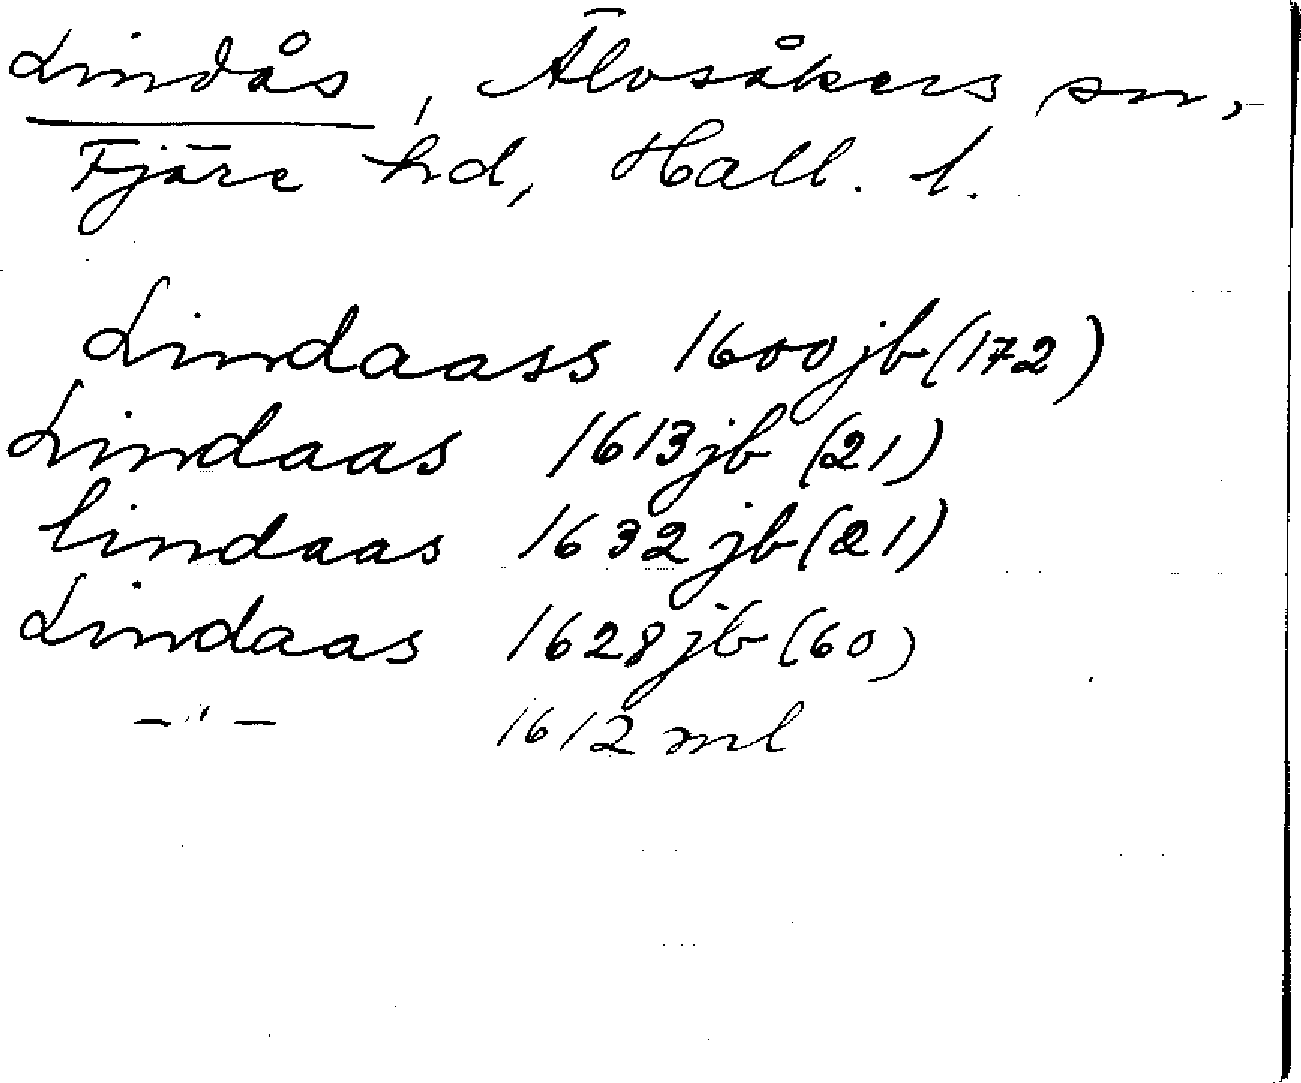 Lindås, Älvsåkers sn,
Fjäre hd, Hall. l.
Lindaass 1600 jb (172)
Lindaas 1613 jb (21)
lindaas 1632 jb (21)
Lindaas 1628 jb (60)
–"– 1612 ml